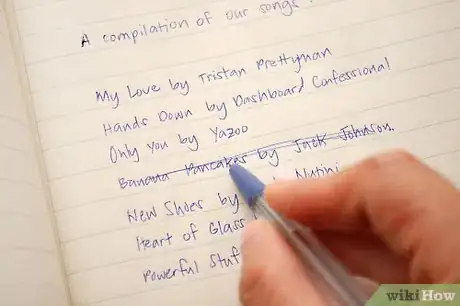 A compilation of our songs
My Love by Tristan Prettyman
Hands Down by Dashboard Confessional
Only You by Yazoo
Banana Pancakes by Jack Johnson
New Shoes by Nutini
Heart of Glass
Powerful Stuf
wikiHow